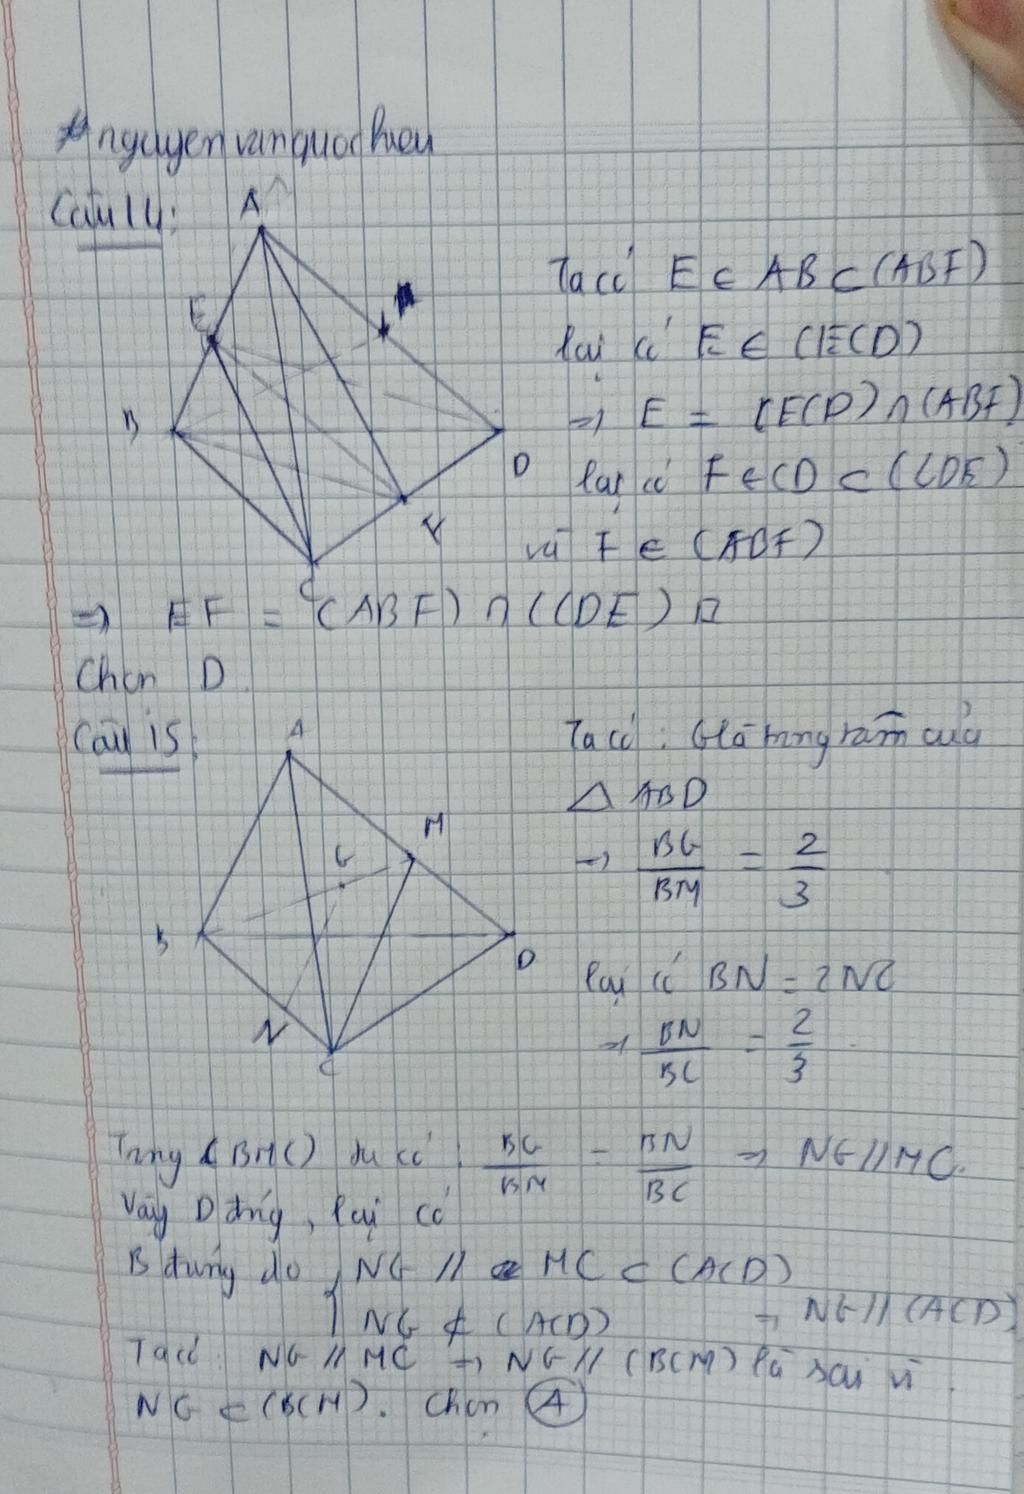 nguyenvanquochieu
Câu 14:
A
E
B
D
F
C
Ta có E ∈ AB ⊂ (ABF)
lại có E ∈ (ECD)
⇒ E = (ECD) ∩ (ABF)
lại có F ∈ CD ⊂ (CDE)
và F ∈ (ABF)
⇒ EF = (ABF) ∩ (CDE) □
Chọn D.
Câu 15:
A
M
G
B
D
N
C
Ta có: G là trọng tâm của
△ ABD
⇒ BG/BM = 2/3
lại có BN = 2NC
⇒ BN/BC = 2/3.
Trong (BMC) ta có: BG/BM = BN/BC ⇒ NG // MC.
Vậy D đúng, lại có
B đúng do { NG // MC ⊂ (ACD)
NG ⊄ (ACD) ⇒ NG // (ACD)
Ta có NG // MC ⇒ NG // (BCM) là sai vì
NG ⊂ (BCM). Chọn A